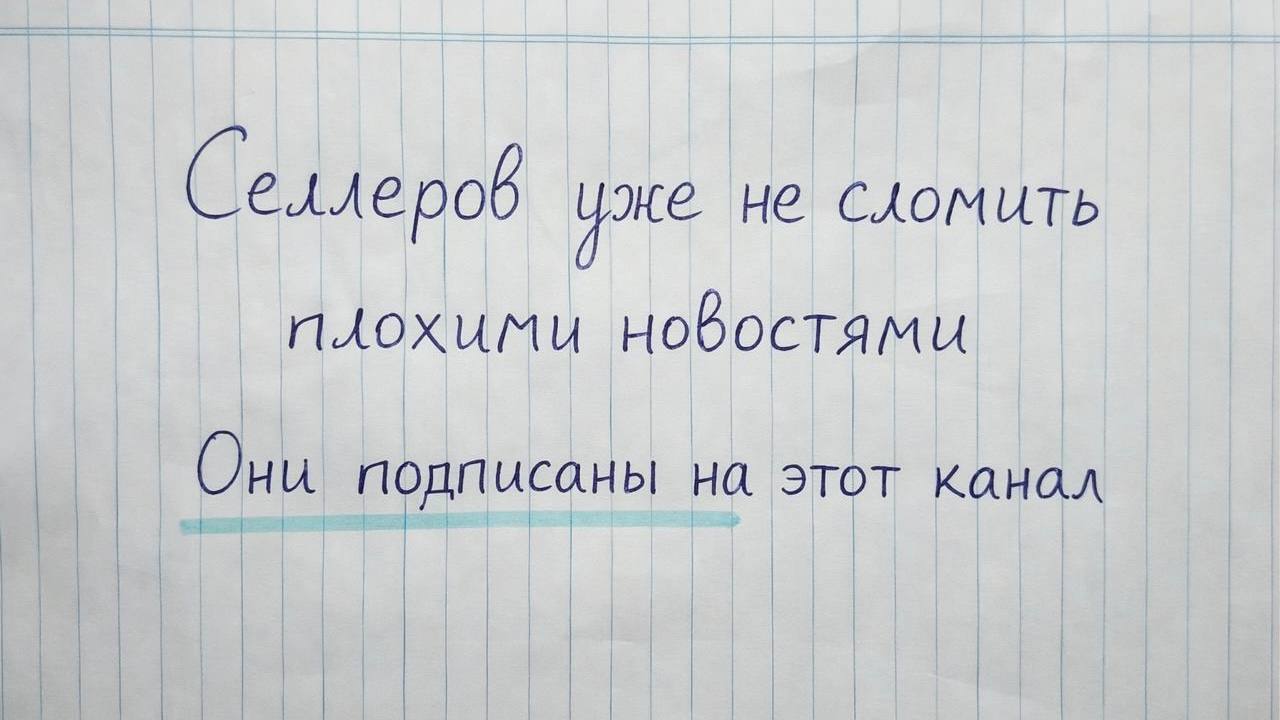 Селлеров уже не сломить
плохими новостями
Они подписаны на этот канал